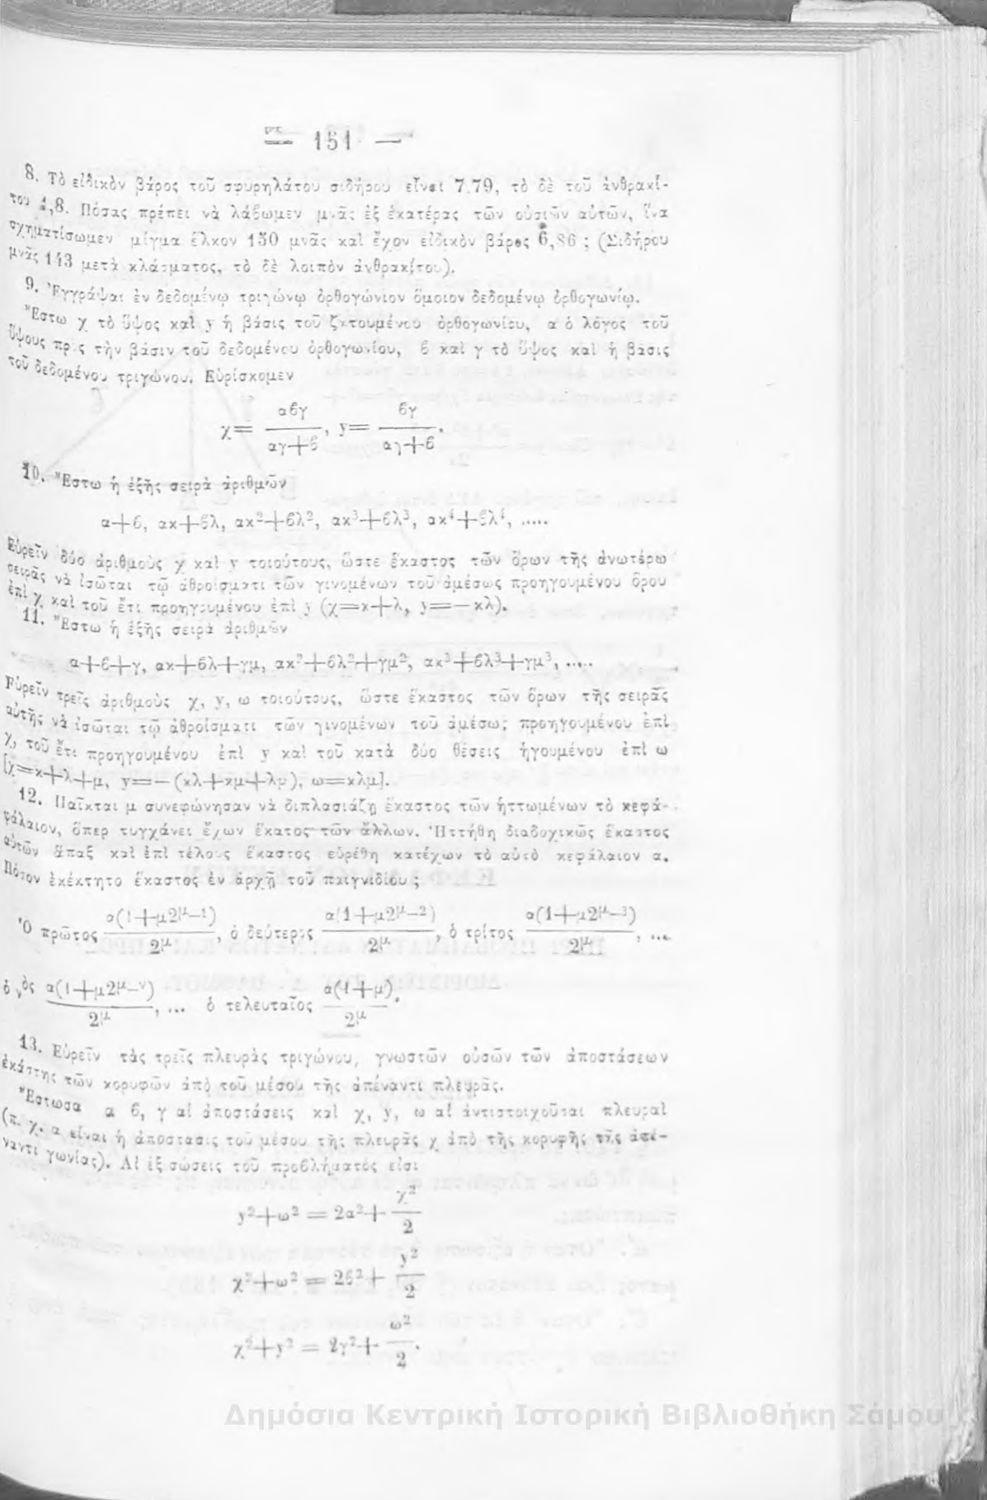 — 151 —
8. Τὸ εἰδικὸν βάρος τοῦ σφυρηλάτου σιδήρου εἶναι 7,79, τὸ δὲ τοῦ ἀνθρακί-
του 4,8. Πόσας πρέπει νὰ λάβωμεν μνᾶς ἐξ ἑκατέρας τῶν οὐσιῶν αὐτῶν, ἵνα
σχηματίσωμεν μίγμα ἕλκον 150 μνᾶς καὶ ἔχον εἰδικὸν βάρος 6,86 ; (Σιδήρου
μνᾶς 143 μετὰ κλάσματος, τὸ δὲ λοιπὸν ἀνθρακίτου).
9. Ἐγγράψαι ἐν δεδομένῳ τριγώνῳ ὀρθογώνιον ὅμοιον δεδομένῳ ὀρθογωνίῳ.
Ἔστω χ τὸ ὕψος καὶ y ἡ βάσις τοῦ ζητουμένου ὀρθογωνίου, α ὁ λόγος τοῦ
ὕψους πρὸς τὴν βάσιν τοῦ δεδομένου ὀρθογωνίου, β καὶ γ τὸ ὕψος καὶ ἡ βάσις
τοῦ δεδομένου τριγώνου. Εὑρίσκομεν
χ= αβγ/(αγ+β), y= βγ/(αγ+β).
10. Ἔστω ἡ ἑξῆς σειρὰ ἀριθμῶν
α+β, ακ+βλ, ακ²+βλ², ακ³+βλ³, ακ⁴+βλ⁴, .....
Εὑρεῖν δύο ἀριθμοὺς χ καὶ y τοιούτους, ὥστε ἕκαστος τῶν ὅρων τῆς ἀνωτέρω
σειρᾶς νὰ ἰσῶται τῷ ἀθροίσματι τῶν γινομένων τοῦ ἀμέσως προηγουμένου ὅρου
ἐπὶ χ καὶ τοῦ ἔτι προηγουμένου ἐπὶ y (χ=κ+λ, y=—κλ).
11. Ἔστω ἡ ἑξῆς σειρὰ ἀριθμῶν
α+β+γ, ακ+βλ+γμ, ακ²+βλ²+γμ², ακ³+βλ³+γμ³, .....
Εὑρεῖν τρεῖς ἀριθμοὺς χ, y, ω τοιούτους, ὥστε ἕκαστος τῶν ὅρων τῆς σειρᾶς
αὐτῆς νὰ ἰσῶται τῷ ἀθροίσματι τῶν γινομένων τοῦ ἀμέσως προηγουμένου ἐπὶ
χ, τοῦ ἔτι προηγουμένου ἐπὶ y καὶ τοῦ κατὰ δύο θέσεις ἡγουμένου ἐπὶ ω
[χ=κ+λ+μ, y=—(κλ+κμ+λμ), ω=κλμ].
12. Παῖκται μ συνεφώνησαν νὰ διπλασιάζῃ ἕκαστος τῶν ἡττωμένων τὸ κεφά-
φάλαιον, ὅπερ τυγχάνει ἔχων ἕκατος τῶν ἄλλων. Ἡττήθη διαδοχικῶς ἕκαστος
αὐτῶν ἅπαξ καὶ ἐπὶ τέλους ἕκαστος εὑρέθη κατέχων τὸ αὐτὸ κεφάλαιον α.
Πόσον ἐκέκτητο ἕκαστος ἐν ἀρχῇ τοῦ παιγνιδίου ;
Ὁ πρῶτος α(1+μ2^μ—1)/2^μ, ὁ δεύτερος α(1+μ2^μ—2)/2^μ, ὁ τρίτος α(1+μ2^μ—3)/2^μ, ...
ὁ νὸς α(1+μ2^μ—ν)/2^μ, ... ὁ τελευταῖος α(1+μ)/2^μ.
13. Εὑρεῖν τὰς τρεῖς πλευρὰς τριγώνου, γνωστῶν οὐσῶν τῶν ἀποστάσεων
ἑκάστης τῶν κορυφῶν ἀπὸ τοῦ μέσου τῆς ἀπέναντι πλευρᾶς.
Ἔστωσα α β, γ αἱ ἀποστάσεις καὶ χ, y, ω αἱ ἀντιστοιχοῦσαι πλευραὶ
(π. χ. α εἶναι ἡ ἀπόστασις τοῦ μέσου τῆς πλευρᾶς χ ἀπὸ τῆς κορυφῆς τῆς ἀπέ-
ναντι γωνίας). Αἱ ἐξισώσεις τοῦ προβλήματός εἰσι
y²+ω² = 2α²+ χ²/2
χ²+ω² = 2β²+ y²/2
χ²+y² = 2γ²+ ω²/2.
Δημόσια Κεντρική Ιστορική Βιβλιοθήκη Σάμου